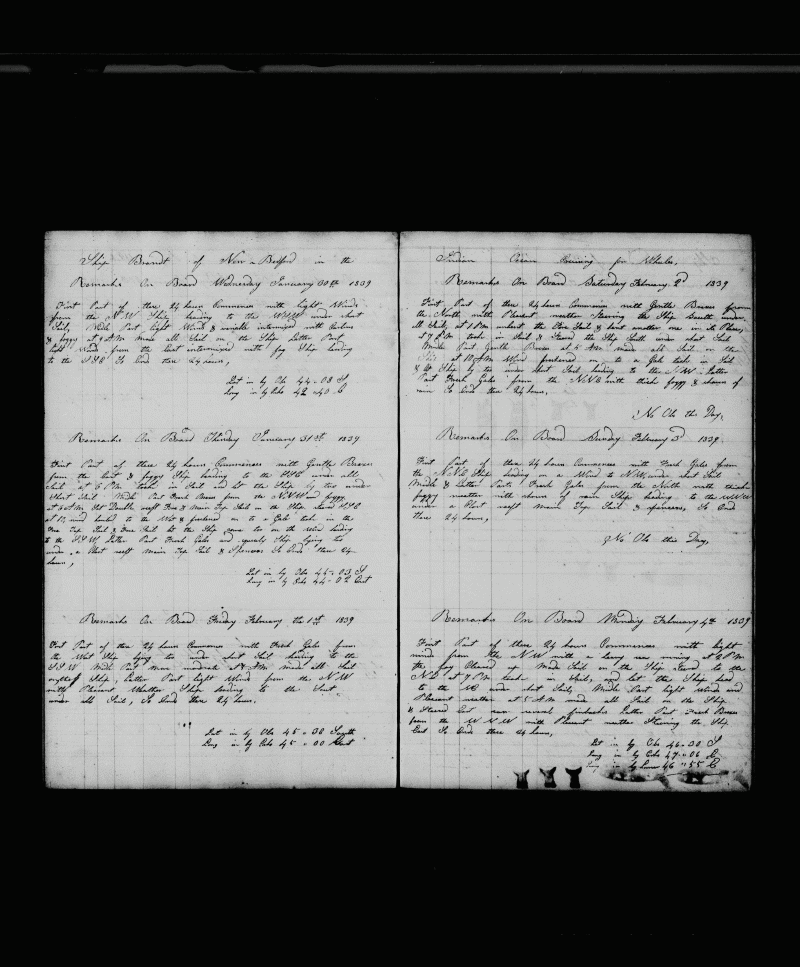 Ship Brandt of New-Bedford in the
Remarks On Board Wednesday January 30th 1839
First Part of these 24 hours Commences with light Winds
from the N.W Ship heading to the WSW under short
Sail, Midle Part light Winds & variable intermixed with
& foggy at 4 AM Made all Sail on the Ship Latter Part
light Winds from the East intermixed with fog Ship heading
to the SSE So Ends these 24 hours,
Lat in by Obs 44-03 S
Long in by Cobs 42-40 E
Remarks On Board Thirsday January 31st 1839
First Part of these 24 hours Commences with Gentle Breeses
from the East & foggy Ship heading to the SSE under all
Sail at 6 PM took in Sail and let the Ship by too under
Short Sail Midle Part Fresh Breses from the NNW and foggy
at 4 AM Set Double reeft Fore & Main Top Sail on the Ship Steerd SSE
at 10 wind hauled to the W & freshend on to a Gale took in the
Fore Top Sail & Fore Sail let the Ship come too on the wind heading
to the SW, Latter Part Fresh Gales and squaly Ship lying too
under a Short reeft Main Top Sail & Spencers So Ends these 24
hours,
Lat in by Obs 44-03 S
Long in by Cobs 44-02 East
Remarks On Board Friday February the 1st 1839
First Part of these 24 hours Commences with Fresh Gales from
the West Ship lying too under short Sail heading to the
SSW Midle Part More moderate at 4 AM Made all Sail
on the Ship, Latter Part light Wind from the NW
with Plesent Weather Ship heading to the East
under all Sail, So Ends these 24 hours,
Lat in by Obs 45-00 South
Long in by Cobs 45-00 East
Indian Ocean Cruising for Whales,
Remarks On Board Saturday February 2d 1839
First Part of these 24 hours Commences with Gentle Breses from
the North with Plesent weather Steering the Ship South under
all Sail, at 1 PM unbent the Fore Sail & bent another one in its Place,
at 7 PM took in Sail & Steerd the Ship South under short Sail
Midle Part Gentle Breses at 4 AM made all Sail on the
Ship at 10 AM Wind freshend on to a Gale took in Sail
& let Ship by too under Short Sail heading to the NW Latter
Part Fresh Gales from the NNE with thick foggy & showers of
rain So Ends these 24 hours,
No Obs this Day,
Remarks On Board Sunday February 3d 1839
First Part of these 24 hours Commences with Fresh Gales from
the NNE Ship heading on a Wind to NW, under short Sail
Midle & Latter Parts Fresh Gales from the North with thick
foggy weather with showers of rain Ship heading to the WNW
under a Short reeft Main Top Sail & spencers, So Ends
these 24 hours,
No Obs this Day,
Remarks On Board Monday February 4th 1839
First Part of these 24 hours Commences with light
winds from the NW with a heavy sea runing at 2 PM
the fog Cleared up Made Sail on the Ship Steerd to the
NE at 7 PM took in Sail, and let the Ship head
to the NE under short Sail, Midle Part light winds and
Plesent weather at 5 AM made all Sail on the Ship
& Steerd East saw several finbacks Latter Part Fresh Breses
from the WNW with Plesent weather Steering the Ship
East So Ends these 24 hours,
Lat in by Obs 46-30 S
Long in by Cobs 47-06 E
Long in by Lunar 46-55 E